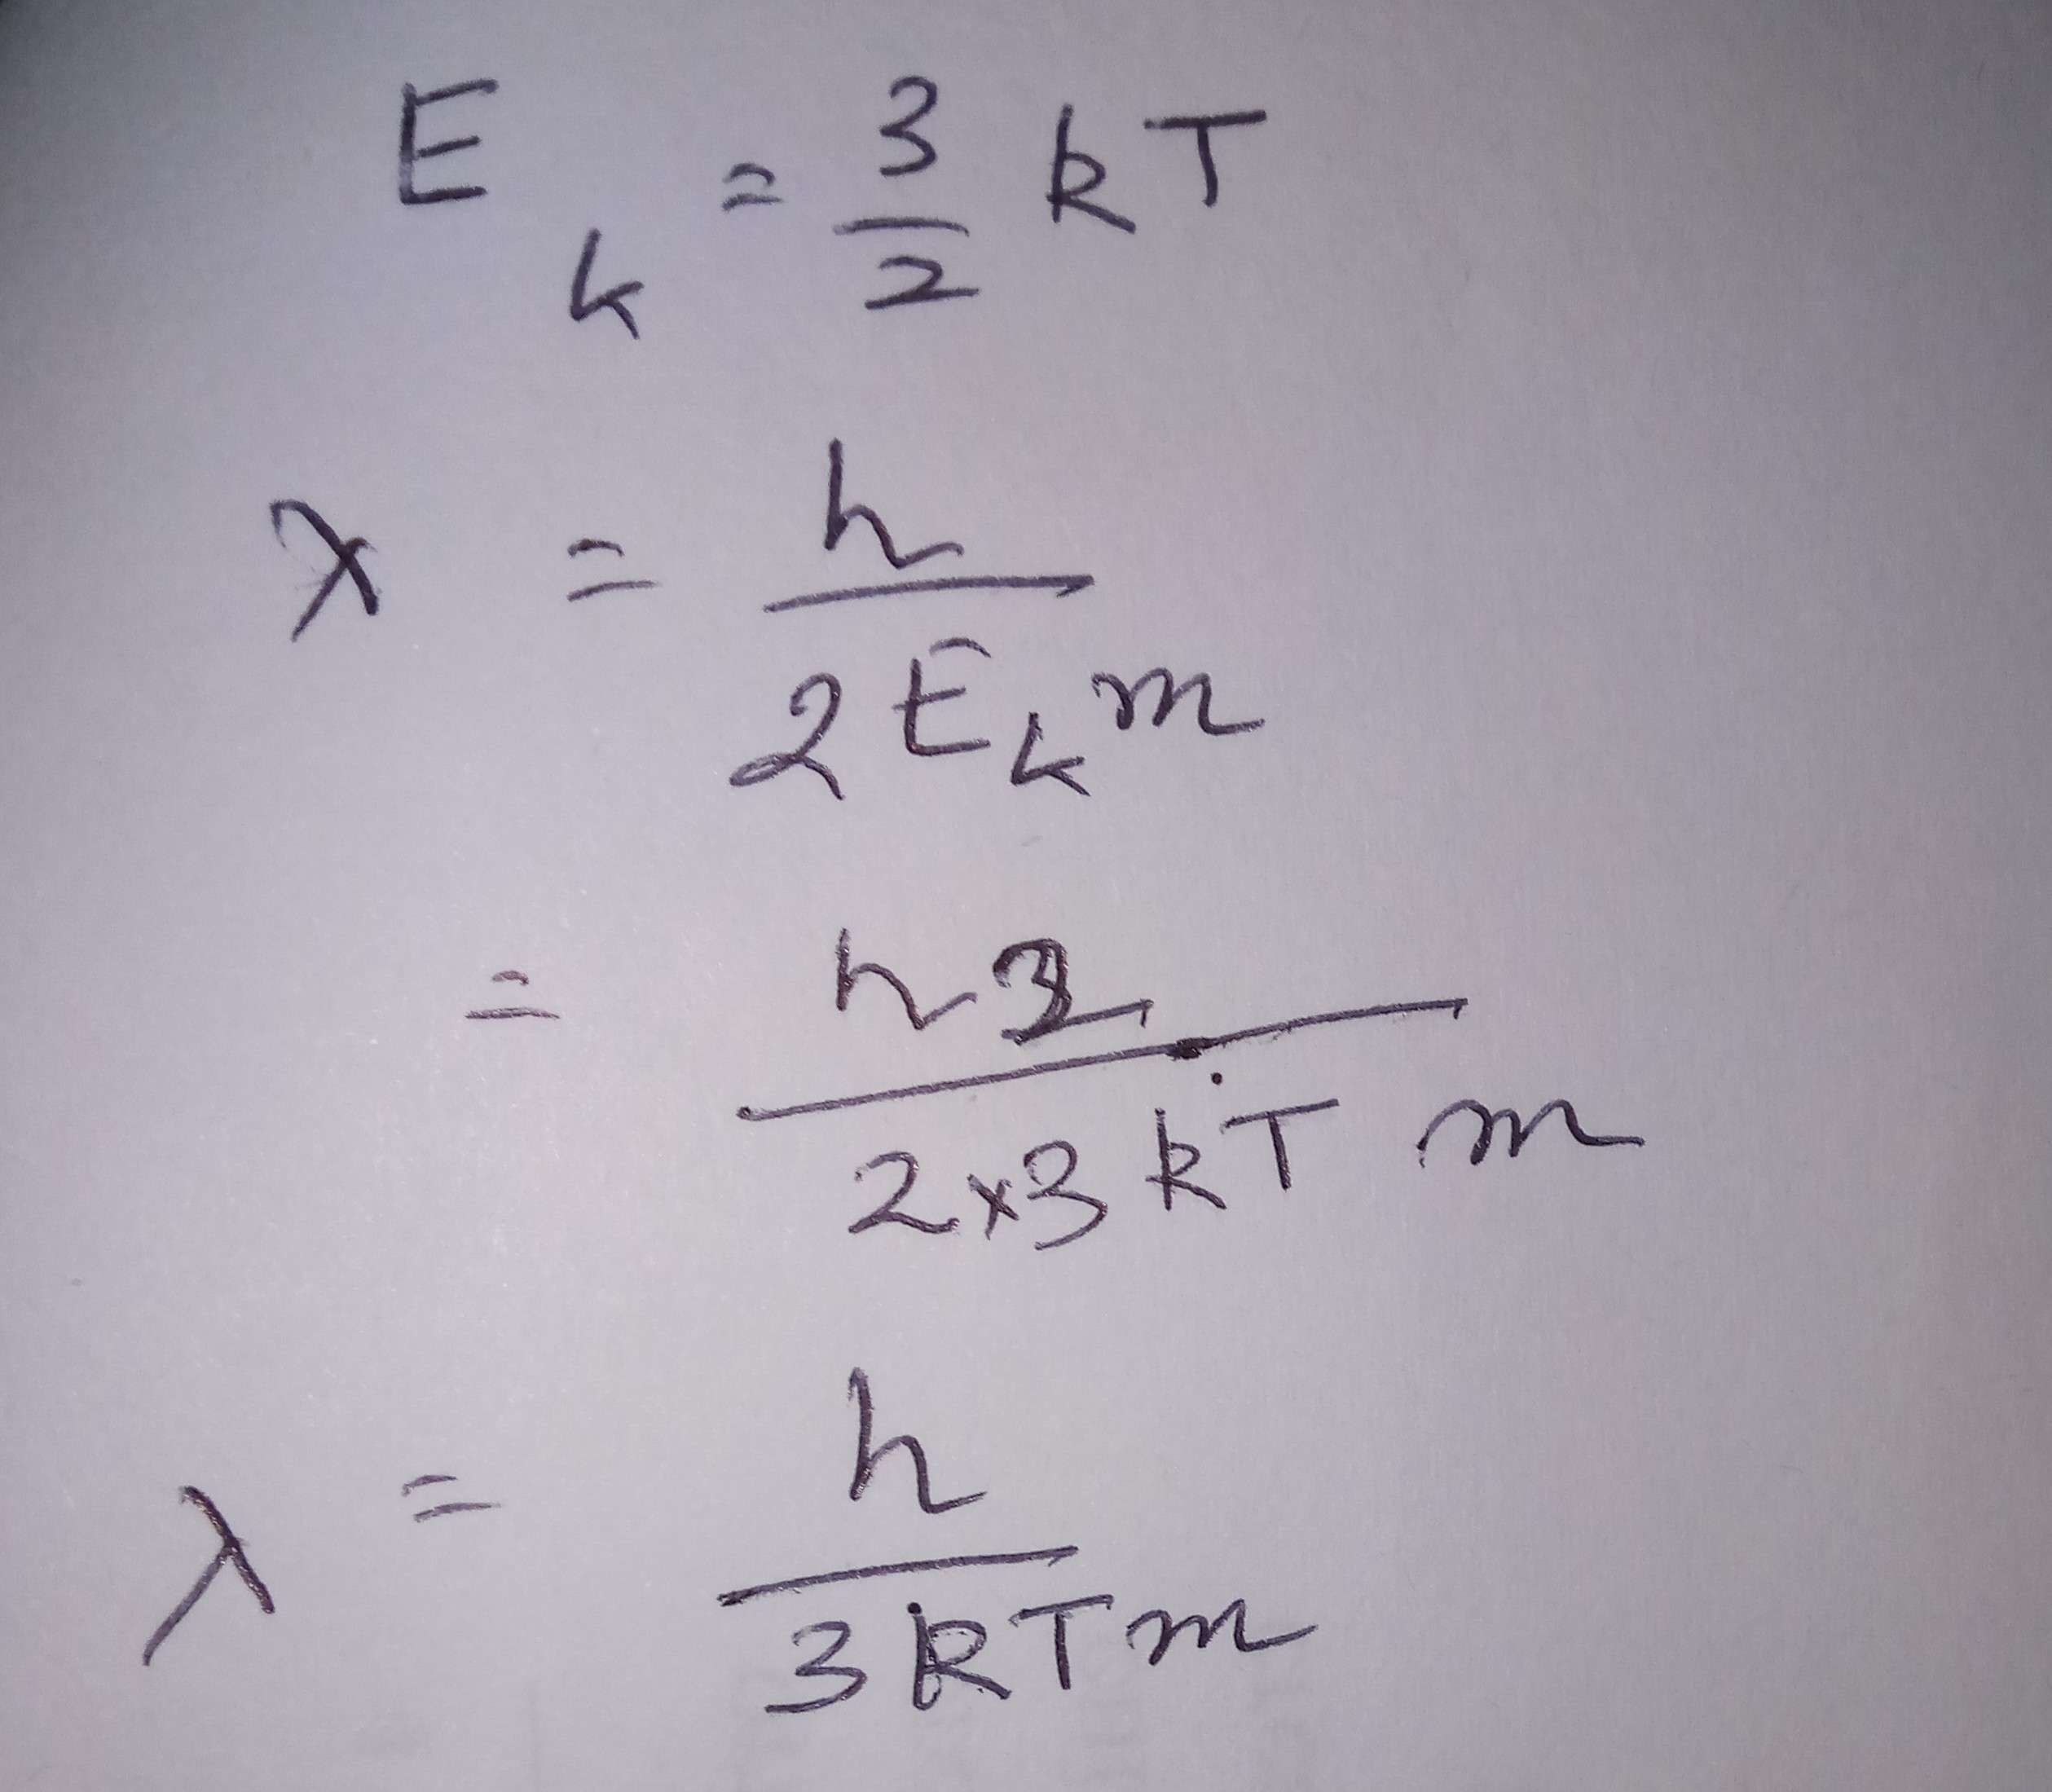 E_k = 3/2 kT
λ = h / 2E_k m
= h2 / 2×3kTm
λ = h / 3kTm